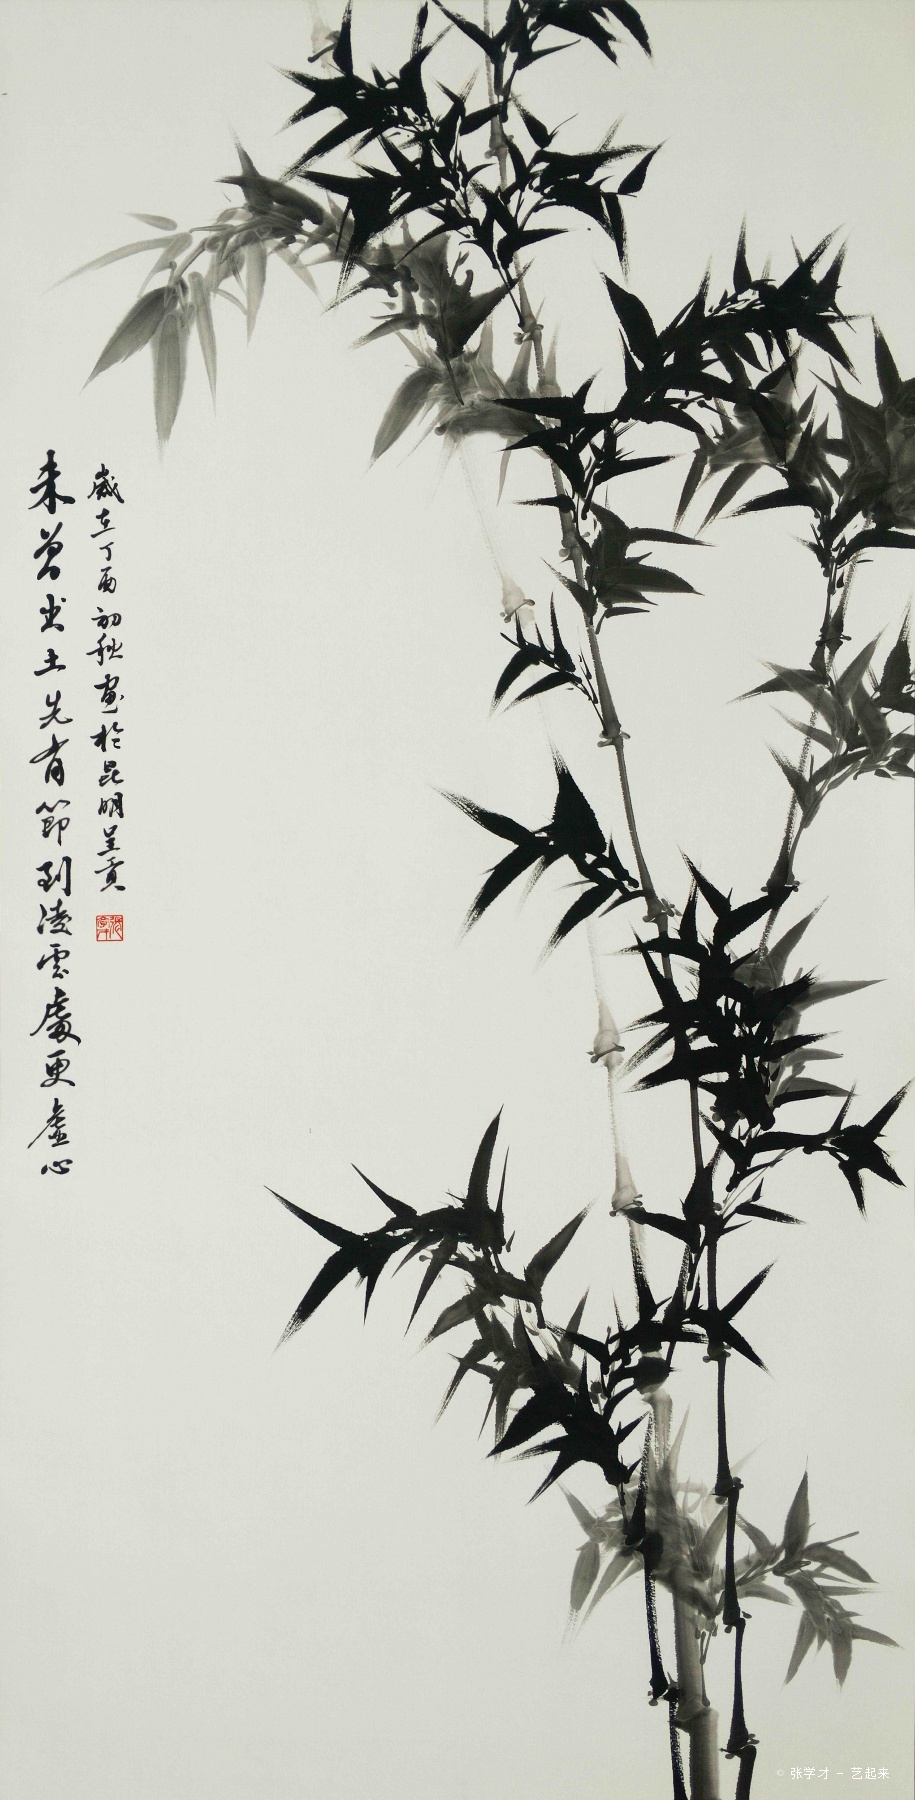 未曾出土先有節到凌雲處更虛心
歲在丁酉初秋畫於昆明呈贡
© 张学才 - 艺起来